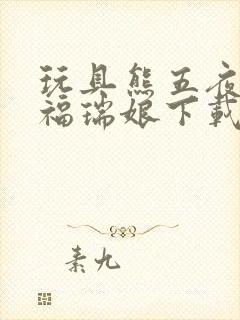 玩具熊五夜
福瑞娘下载
素九